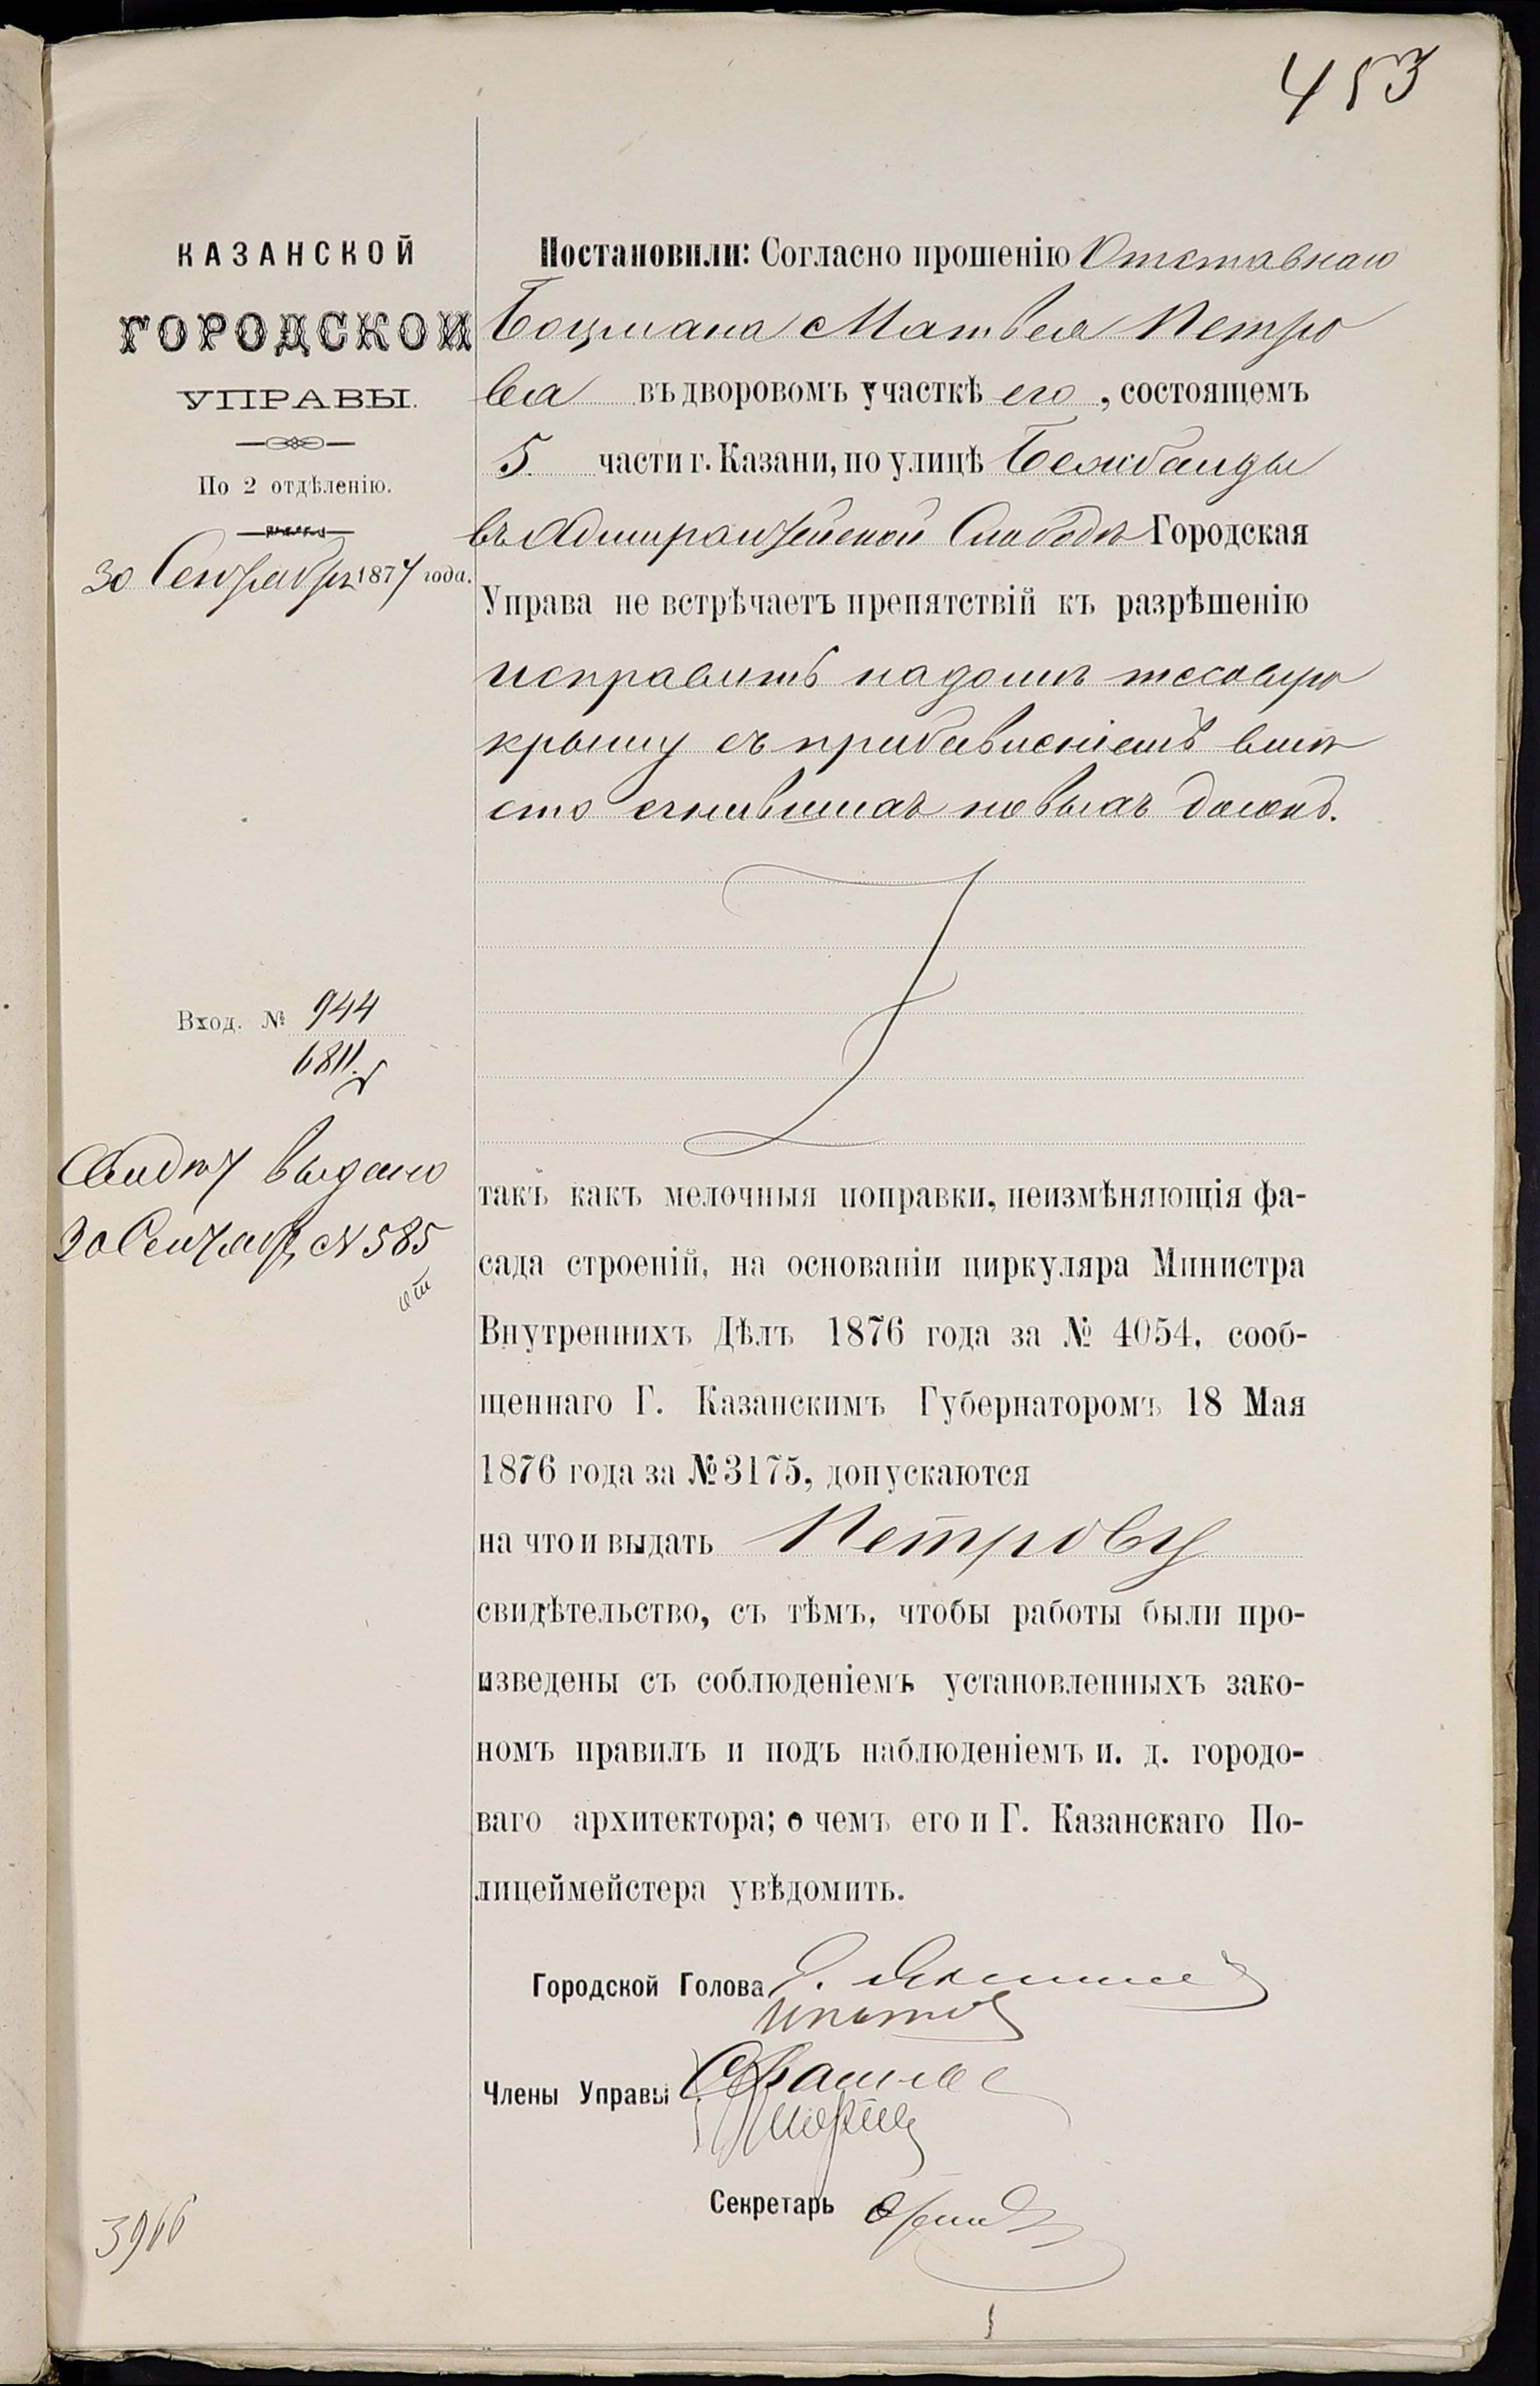 453
КАЗАНСКОЙ
ГОРОДСКОЙ
УПРАВЫ.
По 2 отдѣленію.
30 Сентября 1877 года.
Вход. № 944
6811.
Свидѣт выдано
30 Сентября № 585
3966
Постановили: Согласно прошенію Отставнаго
Боцмана Матвея Петро
ва въ дворовомъ участкѣ его, состоящемъ
5 части г. Казани, по улицѣ Бежбалды
въ Адмиралтейской Слободѣ Городская
Управа не встрѣчаетъ препятствій къ разрѣшенію
исправить на домѣ тесовую
крышу съ прибавленіемъ вмѣ
сто сгнившихъ новыхъ досокъ.
такъ какъ мелочныя поправки, неизмѣняющія фа-
сада строеній, на основаніи циркуляра Министра
Внутреннихъ Дѣлъ 1876 года за № 4054, сооб-
щеннаго Г. Казанскимъ Губернаторомъ 18 Мая
1876 года за № 3175, допускаются
на что и выдать Петрову
свидѣтельство, съ тѣмъ, чтобы работы были про-
изведены съ соблюденіемъ установленныхъ зако-
номъ правилъ и подъ наблюденіемъ и. д. городо-
ваго архитектора; о чемъ его и Г. Казанскаго По-
лицеймейстера увѣдомить.
Городской Голова
Члены Управы
Секретарь